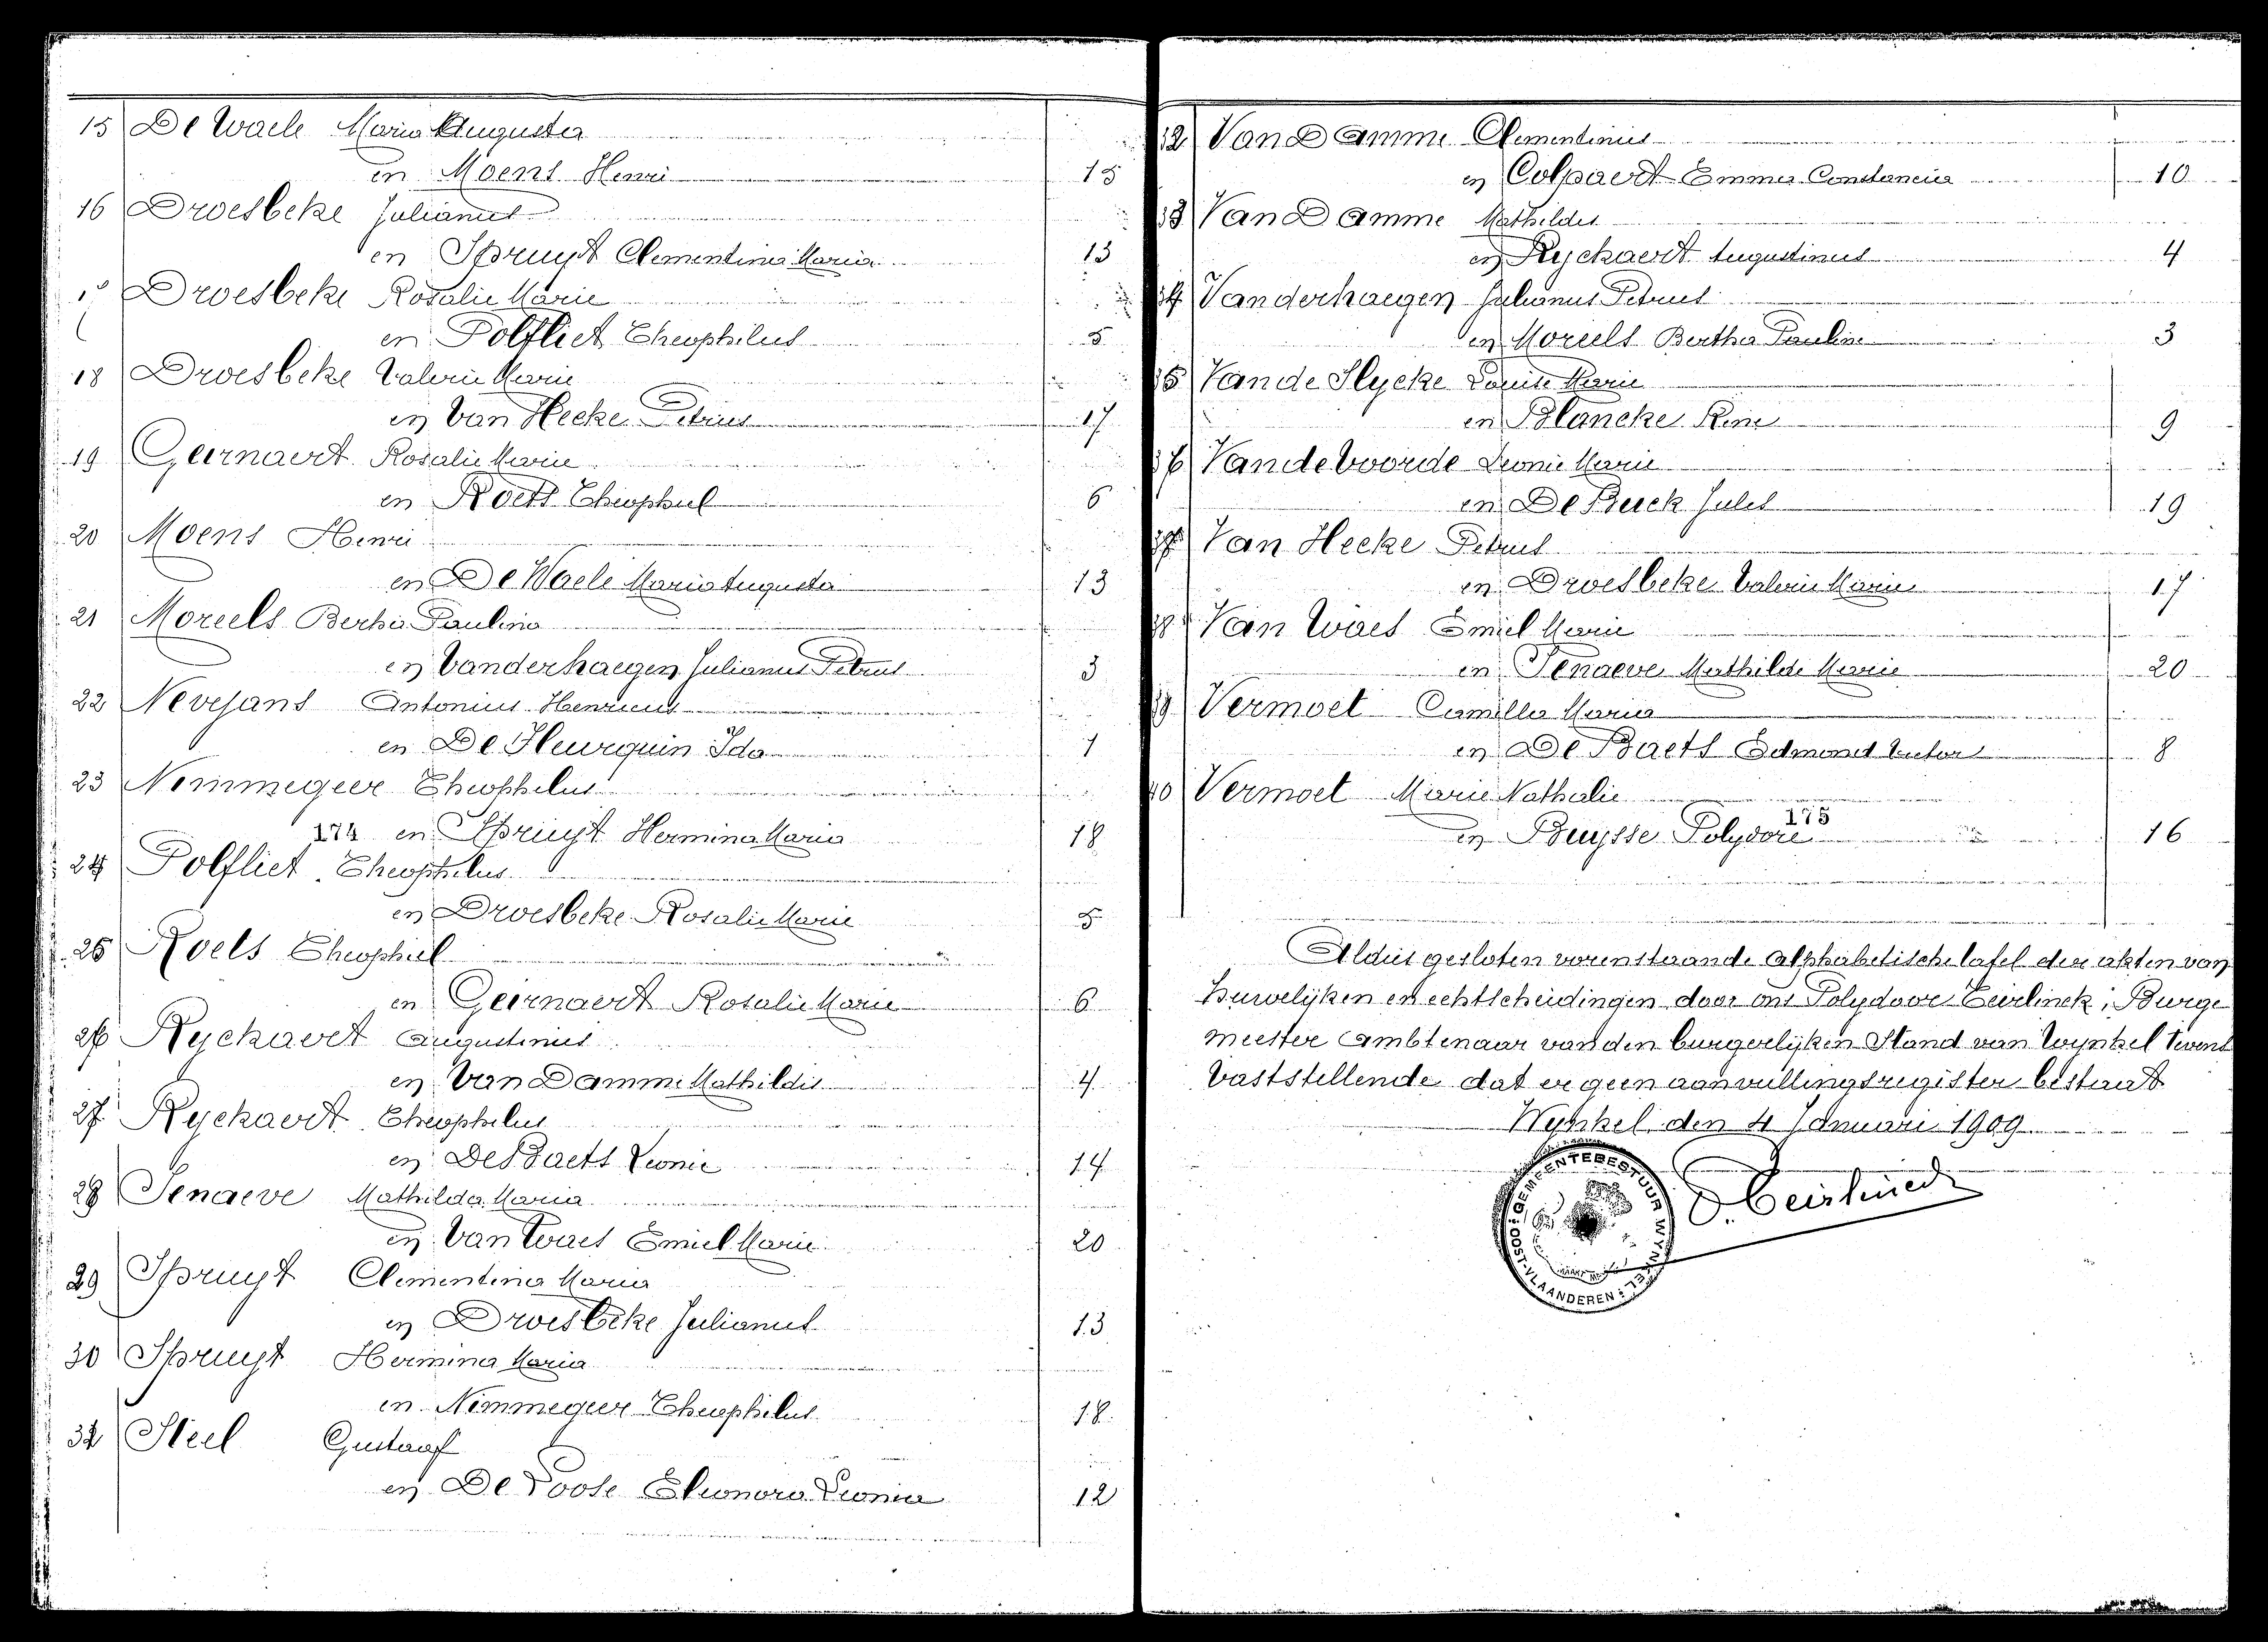 15 De Waele Maria Augusta
en Moens Henri 15
16 Droesbeke Julianus
en Spruyt Clementina Maria 13
Droesbeke Rosalie Marie
en Polfliet Theophilus 5
18 Droesbeke Valerie Marie
en Van Hecke Petrus 17
19 Geirnaert Rosalie Marie
en Roels Theophiel 6
20 Moens Henri
en De Waele Maria Augusta 13
21 Moreels Bertha Paulina
en Vanderhaegen Julianus Petrus 3
22 Nevejans Antonius Henricus
en De Heurquin Ida 1
23 Nimmegeer Theophilus
174 en Spruyt Hermina Maria 18
24 Polfliet Theophilus
en Droesbeke Rosalie Marie 5
25 Roels Theophiel
en Geirnaert Rosalie Marie 6
26 Ryckaert Augustinus
en Van Damme Mathildis 4
27 Ryckaert Theophilus
en De Baets Leonie 14
28 Senaeve Mathilda Maria
en Van Waes Emiel Marie 20
29 Spruyt Clementina Maria
en Droesbeke Julianus 13
30 Spruyt Hermina Maria
en Nimmegeer Theophilus 18
Steel Gustaaf
en De Poote Eleonora Leonia 12
Van Damme Clementinus
en Colpaert Emma Constancia 10
Van Damme Mathildis
en Ryckaert Augustinus 4
Vanderhaegen Julianus Petrus
en Moreels Bertha Pauline 3
Vande Slycke Louise Marie
en Blancke René 9
Vande Voorde Leonie Marie
en De Buck Jules 19
Van Hecke Petrus
en Droesbeke Valerie Marie 17
Van Waes Emiel Marie
en Senaeve Mathilde Marie 20
Vermoet Camilla Maria
en De Baets Edmond Victor 8
Vermoet Marie Nathalie
175
en Buysse Polydore 16
Aldus gesloten vorenstaande alphabetische tafel der akten van
huwelijken en echtscheidingen door ons Polydoor Geirlinck, Burge
meester ambtenaar van den burgerlijken Stand van Wynkel tevens
vaststellende dat er geen aanvullingsregister bestaat
Wynkel den 4 Januari 1909
GEMEENTEBESTUUR
OOST-VLAANDEREN